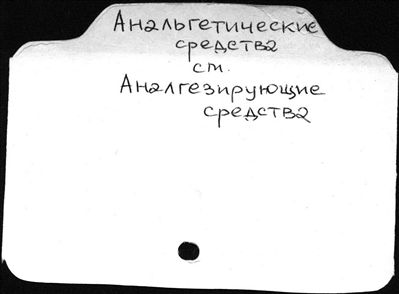 Анальгетические
средства
см.
Аналгезирующие
средства